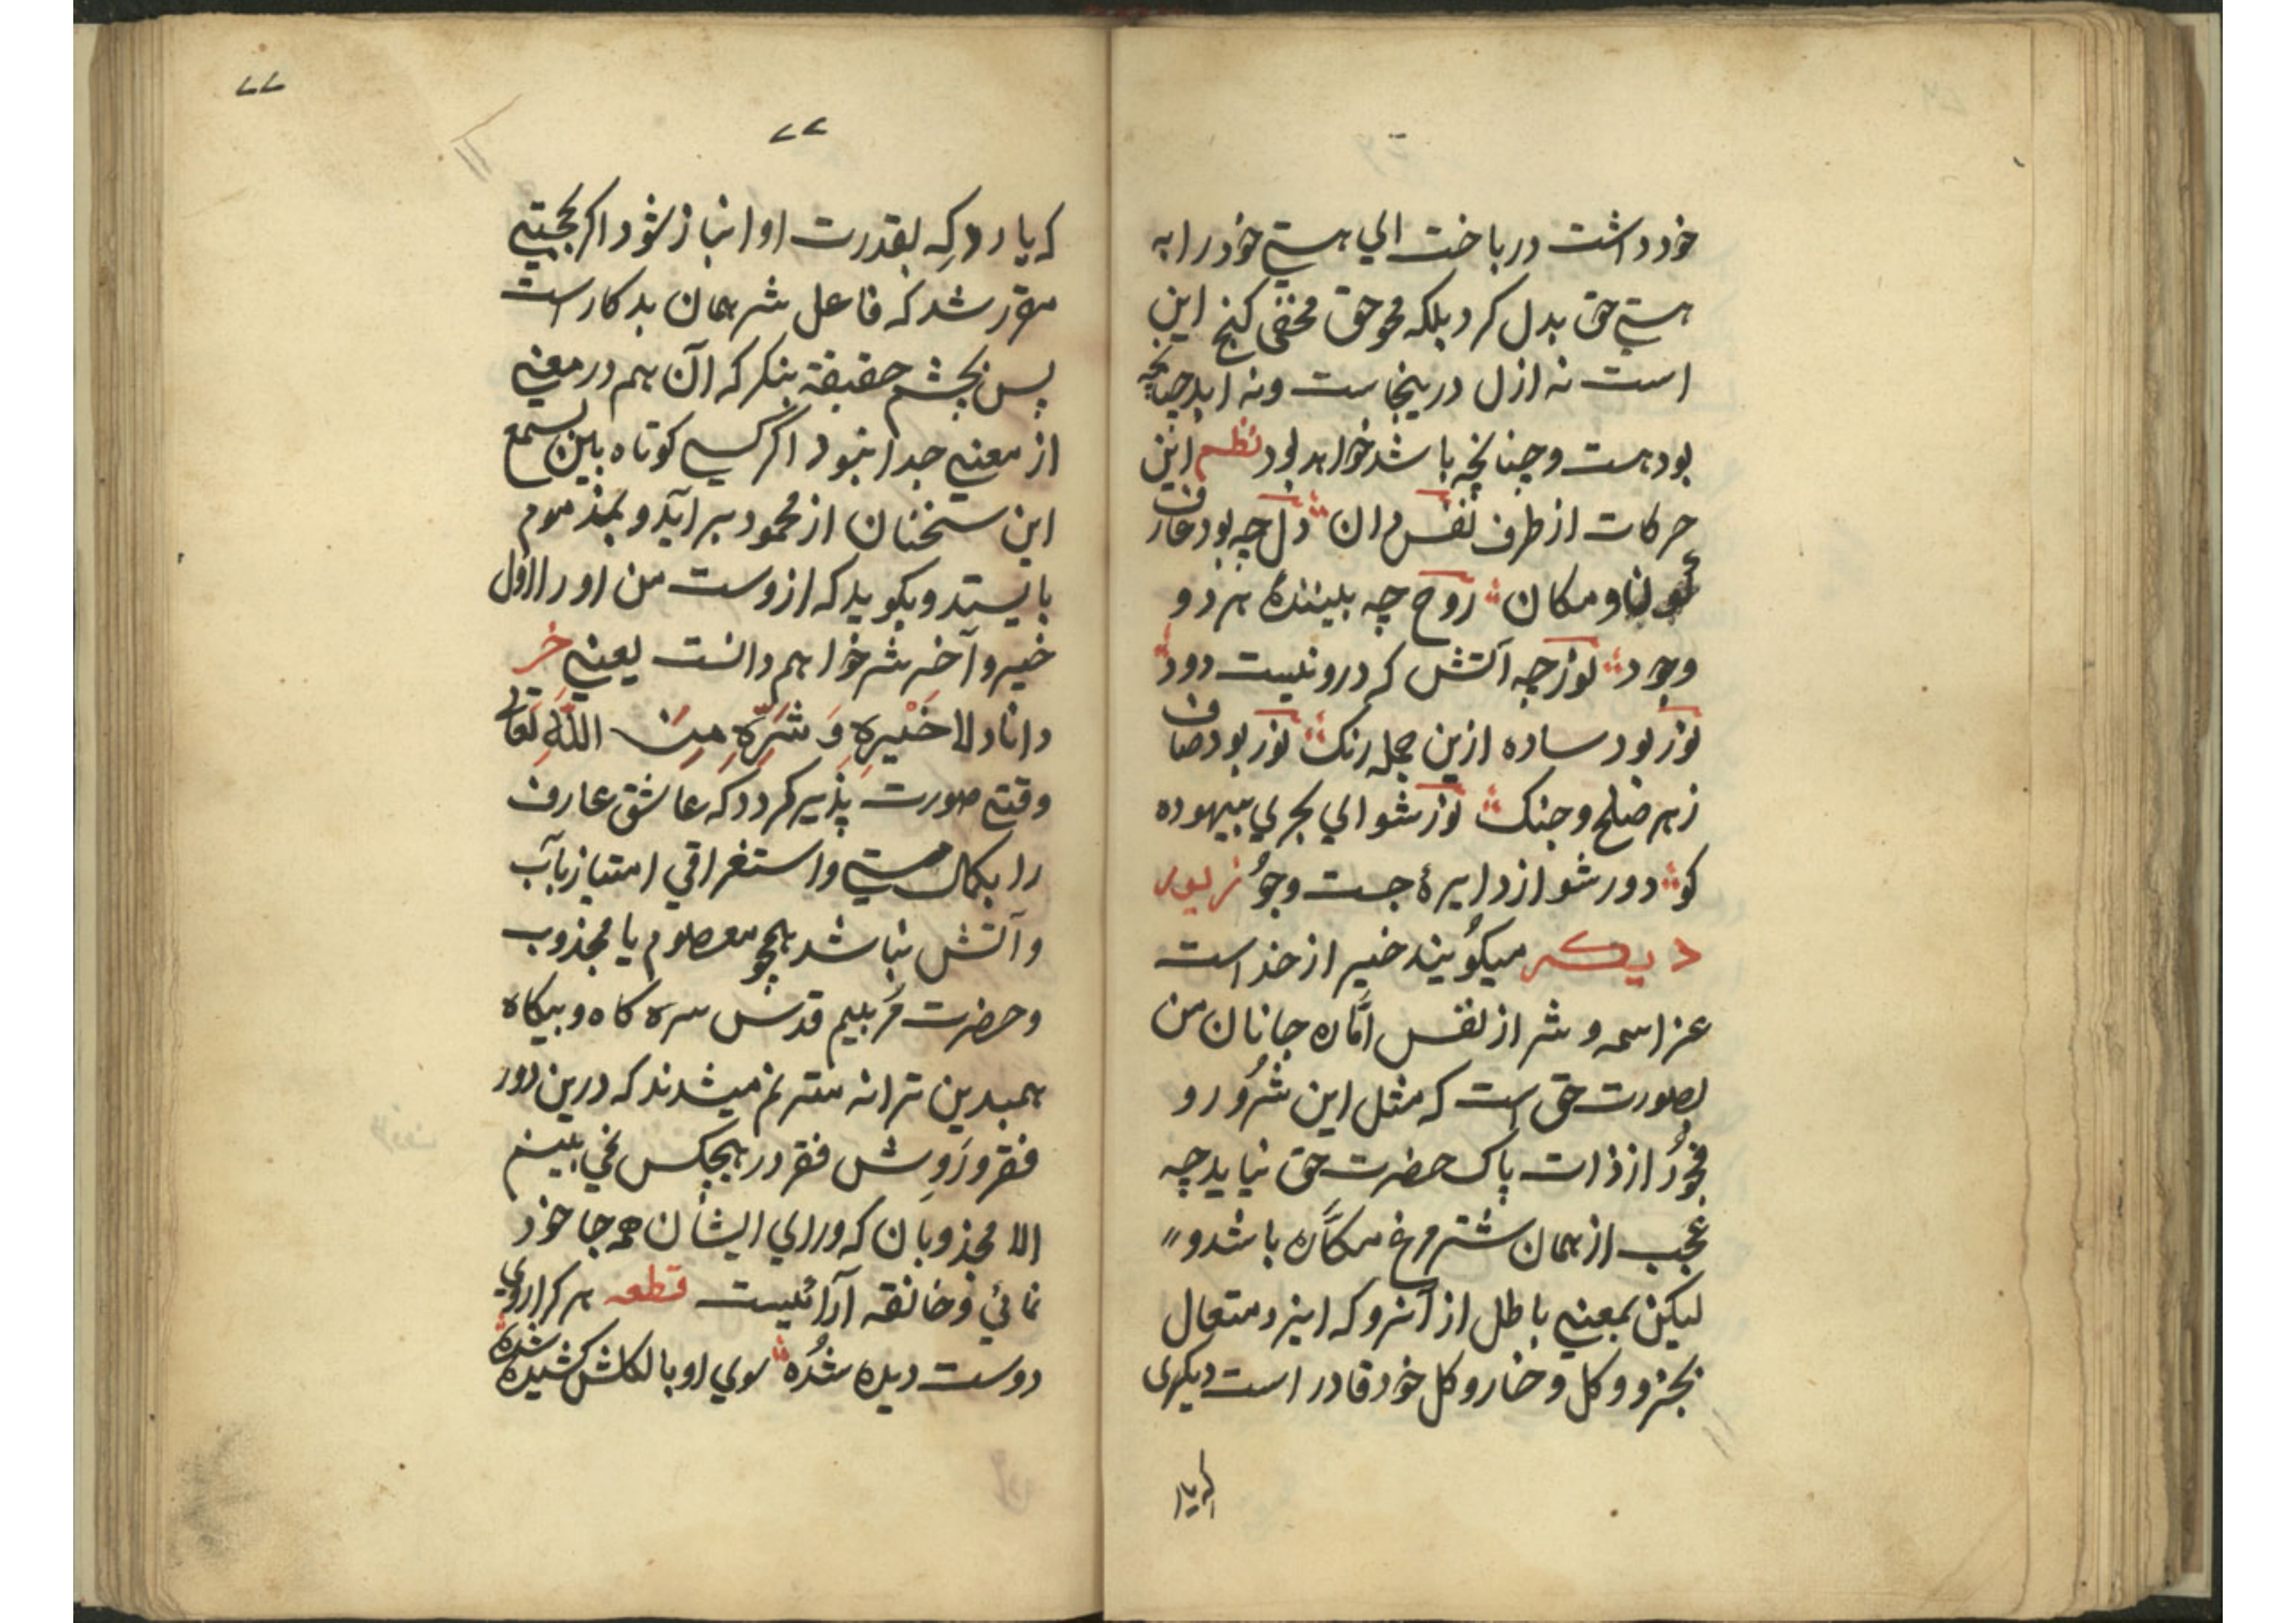 خود داشت در باخت الي هستي خود را به
هستي حق بدل کرد بلکه محو حق مخفي کنج این
است نه ازل درینجاست و نه ابد چنانچه
بودهست و چنانچه باشد خواهد بود نظم این
حرکات از طرف نفس دان دل چه بود عارف
و مکان روح چه بیننده هر دو
وجود نور چه آتش که درو نیست دود
نور بود ساده ازین جمله رنک نور بود صاف
ز هر صلح و جنک نور شو الي بحري بیهوده
کو دور شو از دایرهٔ جست و جو
دیکر میکویند خیر از خداست
عز اسمه و شر از نفس امّاره جانان من
بصورت حق است که مثل این شرور و
فجور از ذات پاک حضرت حق نیاید چه
عجب از همان شتر مرغ مکّاره باشد و
لیکن بمعني باطل از آنرو که ایزد متعال
بجزو و کل و خار و کل خود قادر است دیکری
که یار
٧٧
٧٧
که یارد که بقدرت او انباز شود اکر بحجتي
مقرر شد که فاعل شر همان بدکار است
پس بچشم حقیقة بنکر که آن هم در معني
از معني جدا نبود اکر کسي کوتاه باین سمع
این سخنان از محمود برآید و بمذموم
بایستد و بکوید که ازوست من او را اول
خیر و آخر شر خواهم دانست یعني خر
دانا د لا خَیْرِهِ وَ شَرِّهِ مِنَ اللّٰهِ تَعَالٰی
وقتي صورت پذیر کردد که عاشق عارف
را بکمال مستي و استغراقي امتیاز بآب
و آتش نباشد همچو معصوم یا مجذوب
و حضرت قدس سره کاه و بیکاه
همبدین ترانه مترنم میشدند که درین دور
فقر و رَوِش فقر در هیچکس نمي بینم
الا مجذوبان که وراي ایشان همه جا خود
نمائي و خانقه آرائیست قطعه هر کرا روي
دوست دیده شُده سوي او بالکلش کشیده شده